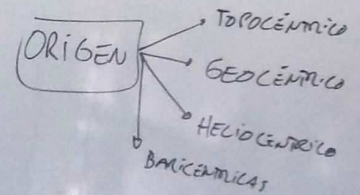 ORIGEN
TOPOCÉNTRICO
GEOCÉNTRICO
HELIOCÉNTRICO
BARICÉNTRICAS